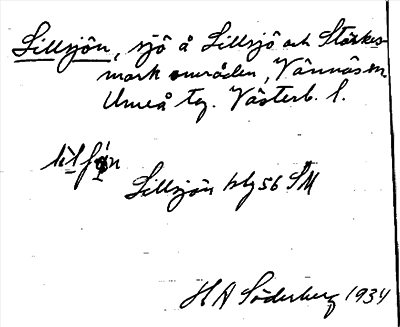 Lillsjön, sjö å Lillsjö och Starkes-
mark områden, Vännäs sn
Umeå tg. Västerb. l.
Lillsjön blz 56 SM
H A Söderberg 1934